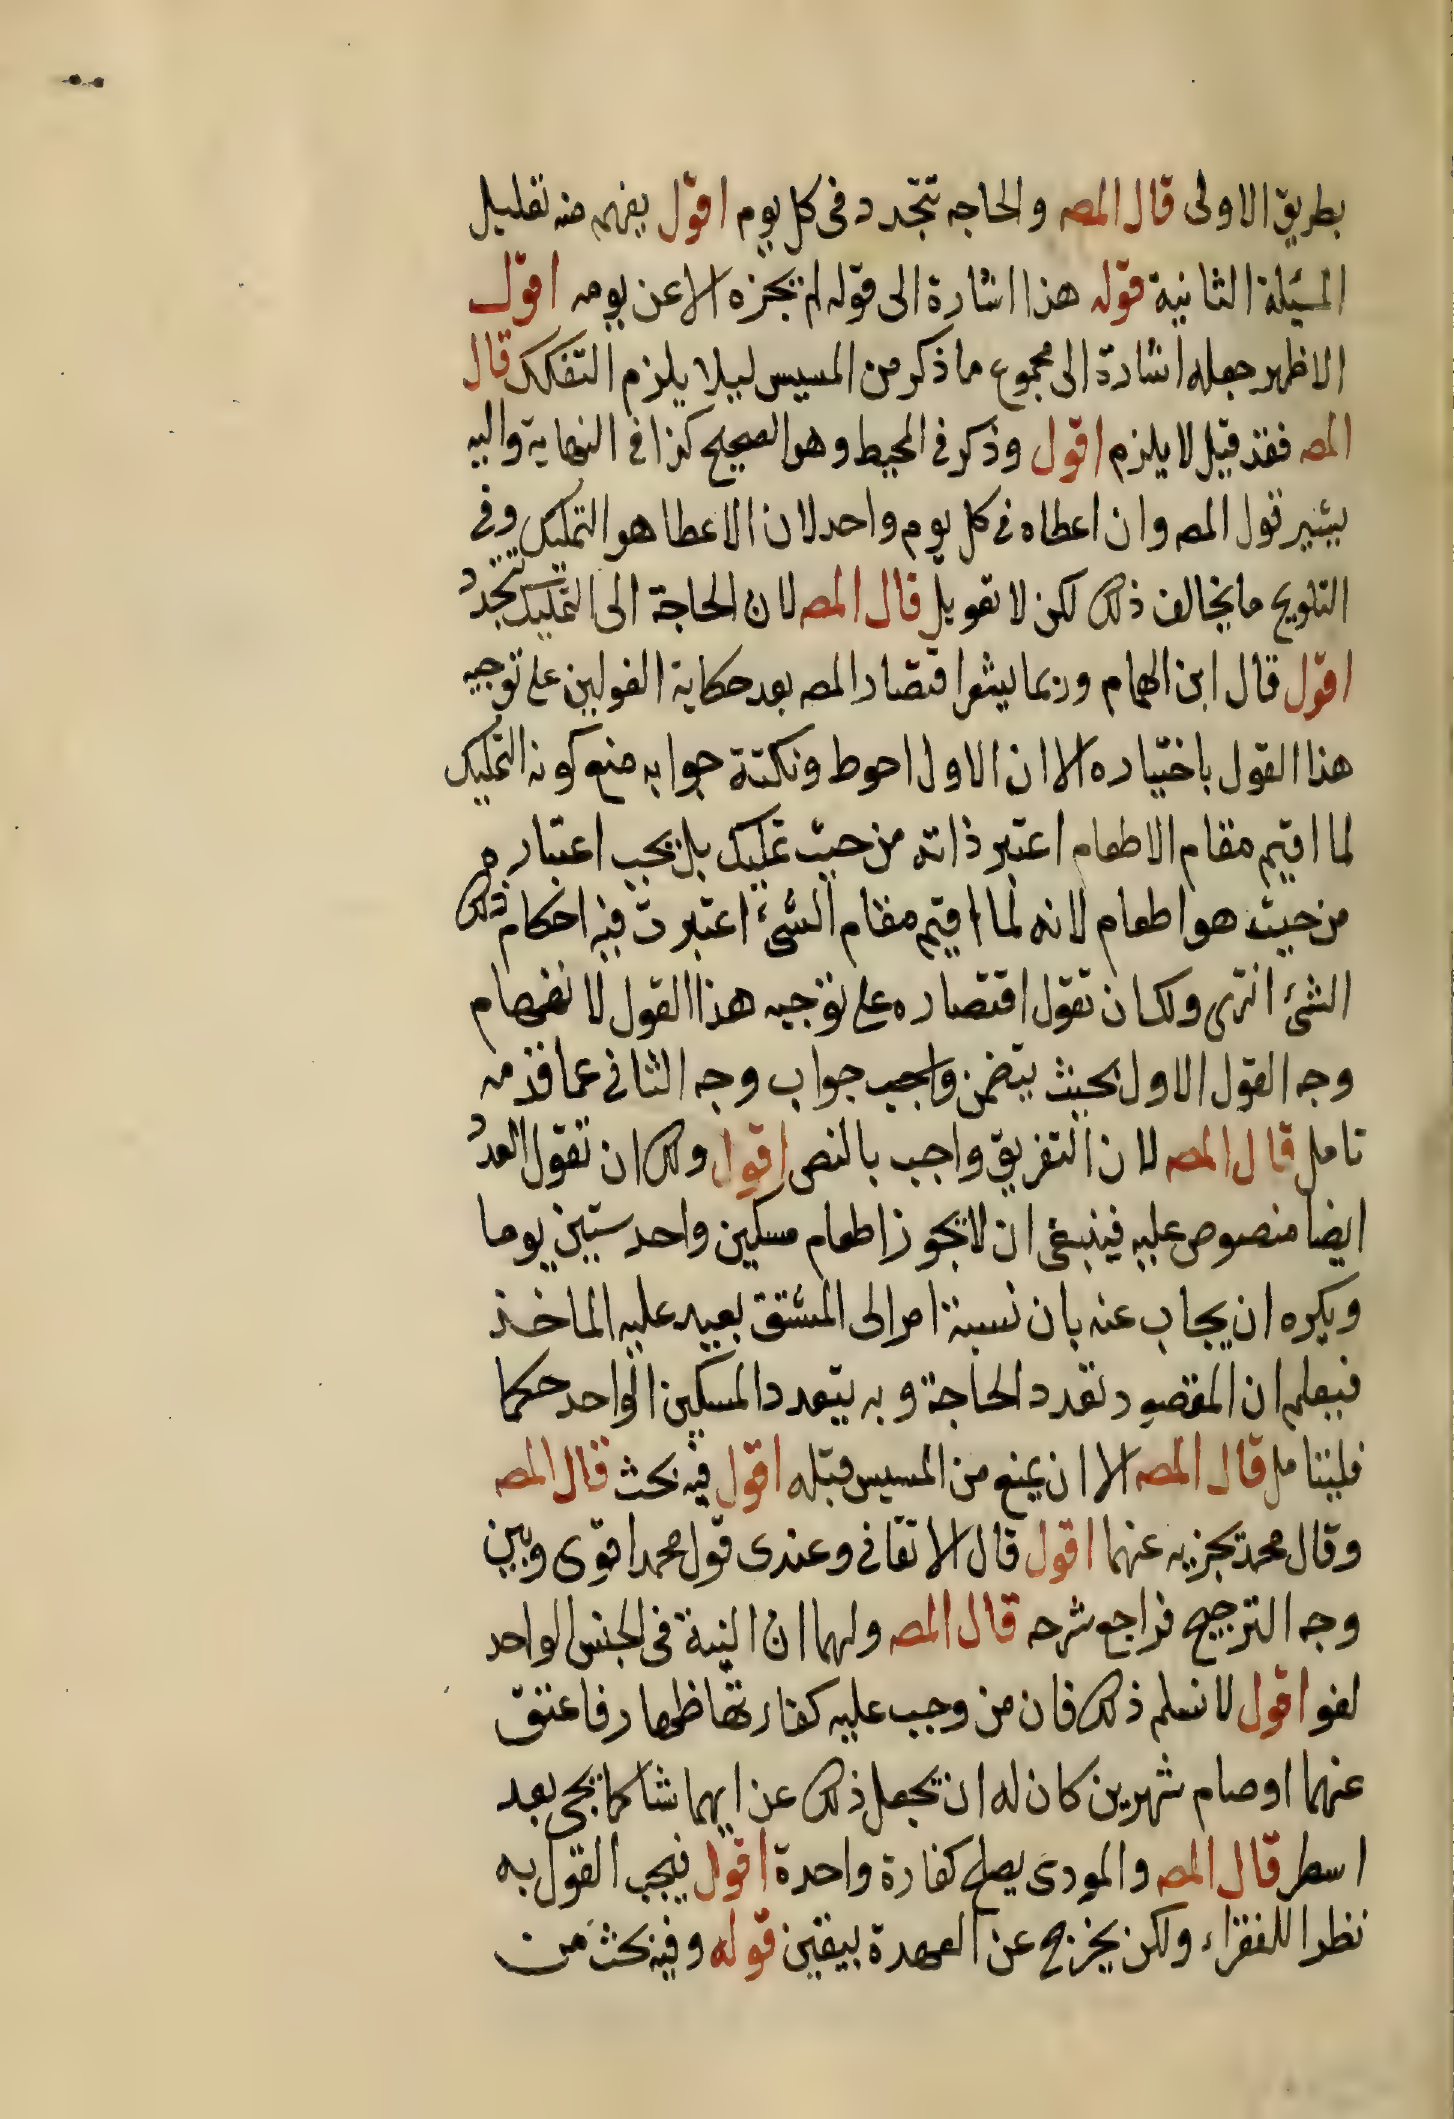 بطريق الاولى قال المصه والحاجه تتجدد فى كل يوم اقول يفهم منه تعليل
المسئلة الثانية قوله هذا اشارة الى قوله لم يجزه الا عن يومه اقول
الاظهر جعله اشارة الى مجموع ما ذكر من المسيس ليلا يلزم التفكك قال
المصه فقد قيل لا يلزم اقول وذكر فى المحيط وهو الصحيح كذا فى النهاية واليه
يشير قول المصه وان اعطاه فى كل يوم واحد لان الاعطا هو التمليك وفى
التلويح ما يخالف ذلك لكن لا تعويل قال المصه لان الحاجة الى التمليك تتجدد
اقول قال ابن الهمام وربما يشعر اقتصار المصه بعد حكاية القولين على توجيه
هذا القول باختياره الا ان الاول احوط ونكتة جوابه منع كونه التمليك
لما اقيم مقام الاطعام اعتبر ذاته من حيث تمليك بل يجب اعتباره
من حيث هو اطعام لانه لما اقيم مقام الشئ اعتبرت فيه احكام ذلك
الشئ انتهى ولك ان تقول اقتصاره على توجيه هذا القول لانفهام
وجه القول الاول بحيث يتضمن واجب جواب وجه الثانى عما قدمه
تامل قال المصه لان التفريق واجب بالنص اقول ولك ان تقول العدد
ايضا منصوص عليه فينبغى ان لا يجوز اطعام مسكين واحد ستين يوما
ويكره ان يجاب عنه بان نسبة امر الى المشتق بعيد عليه الماخذ
فيعلم ان المقصود تعدد الحاجة وبه يتعدد المسكين الواحد حكما
فليتامل قال المصه الا ان يمنع من المسيس قبله اقول فيه بحث قال المصه
وقال محمد يجزيه عنهما اقول قال الاتقانى وعندى قول محمد اقوى وبين
وجه الترجيح فراجع شرحه قال المصه ولهما ان النية فى الجنس الواحد
لغو اقول لا نسلم ذلك فان من وجب عليه كفارتا ظهار فاعتق
عنهما او صام شهرين كان له ان يجعل ذلك عن ايهما شا كما يجى بعد
اسطر قال المصه والمودى يصلح كفارة واحدة اقول فيجب القول به
نظرا للفقراء ولكن يخرج عن العهدة بيقين قوله وفيه بحث من